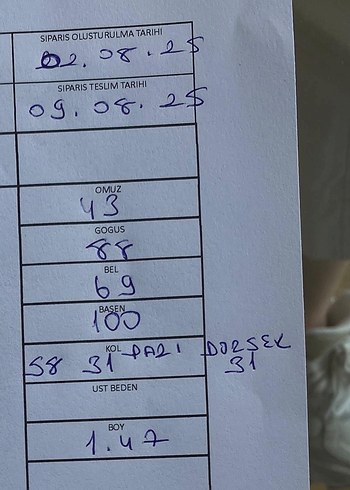 SIPARIS OLUSTURULMA TARIHI
02.08.25
SIPARIS TESLIM TARIHI
09.08.25
OMUZ
43
GOGUS
88
BEL
69
BASEN
100
KOL
58 31 PAZI DIRSEK
31
UST BEDEN
BOY
1.47